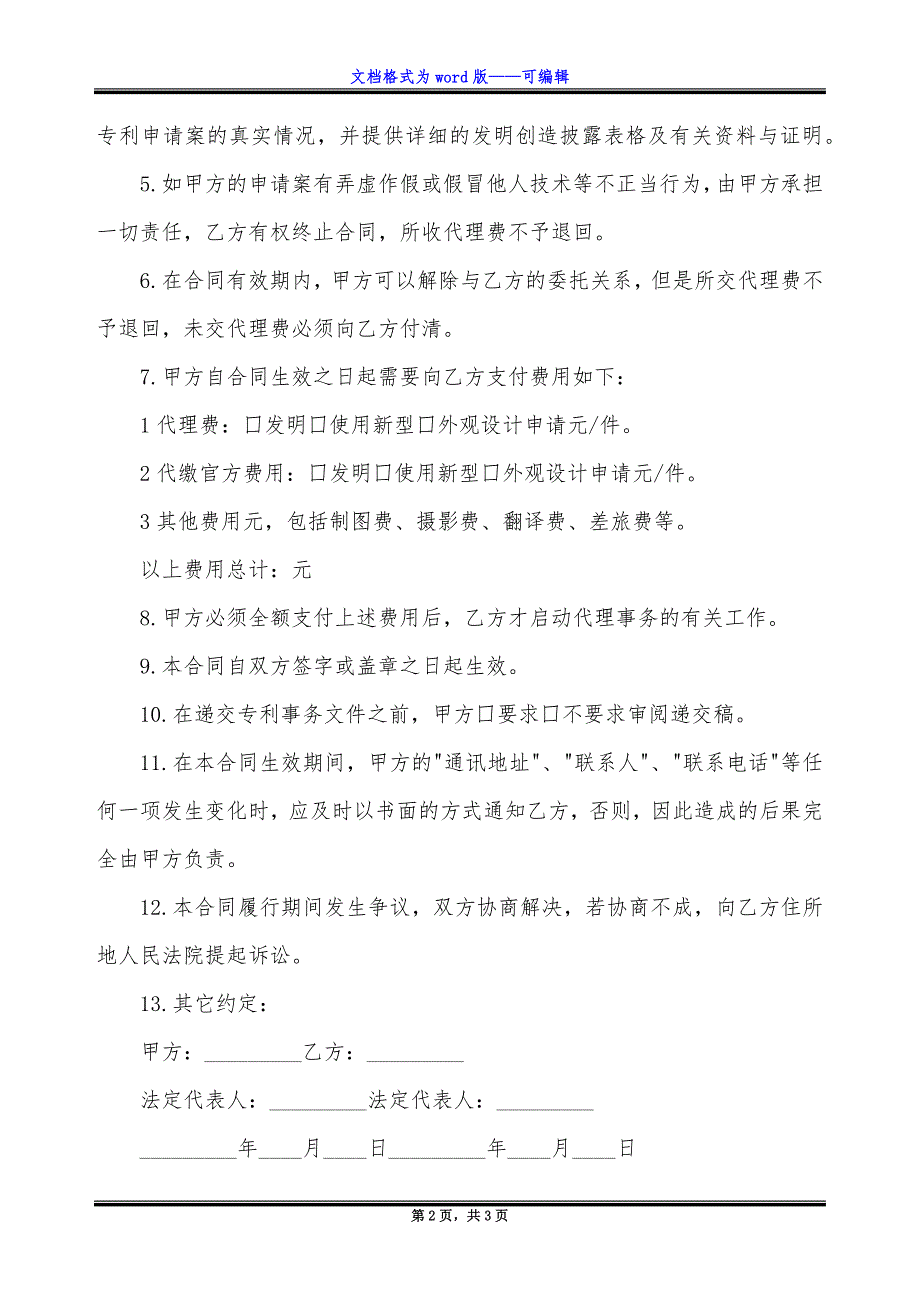 文档格式为 word 版——可编辑
专利申请案的真实情况，并提供详细的发明创造披露表格及有关资料与证明。
5.如甲方的申请案有弄虚作假或假冒他人技术等不正当行为，由甲方承担
一切责任，乙方有权终止合同，所收代理费不予退回。
6.在合同有效期内，甲方可以解除与乙方的委托关系，但是所交代理费不
予退回，未交代理费必须向乙方付清。
7.甲方自合同生效之日起需要向乙方支付费用如下：
1 代理费：口发明口使用新型口外观设计申请元/件。
2 代缴官方费用：口发明口使用新型口外观设计申请元/件。
3 其他费用元，包括制图费、摄影费、翻译费、差旅费等。
以上费用总计：元
8.甲方必须全额支付上述费用后，乙方才启动代理事务的有关工作。
9.本合同自双方签字或盖章之日起生效。
10.在递交专利事务文件之前，甲方口要求口不要求审阅递交稿。
11.在本合同生效期间，甲方的"通讯地址"、"联系人"、"联系电话"等任
何一项发生变化时，应及时以书面的方式通知乙方，否则，因此造成的后果完
全由甲方负责。
12.本合同履行期间发生争议，双方协商解决，若协商不成，向乙方住所
地人民法院提起诉讼。
13.其它约定：
甲方：_________乙方：_________
法定代表人：_________法定代表人：_________
_________年____月____日_________年____月____日
第 2 页，共 3 页